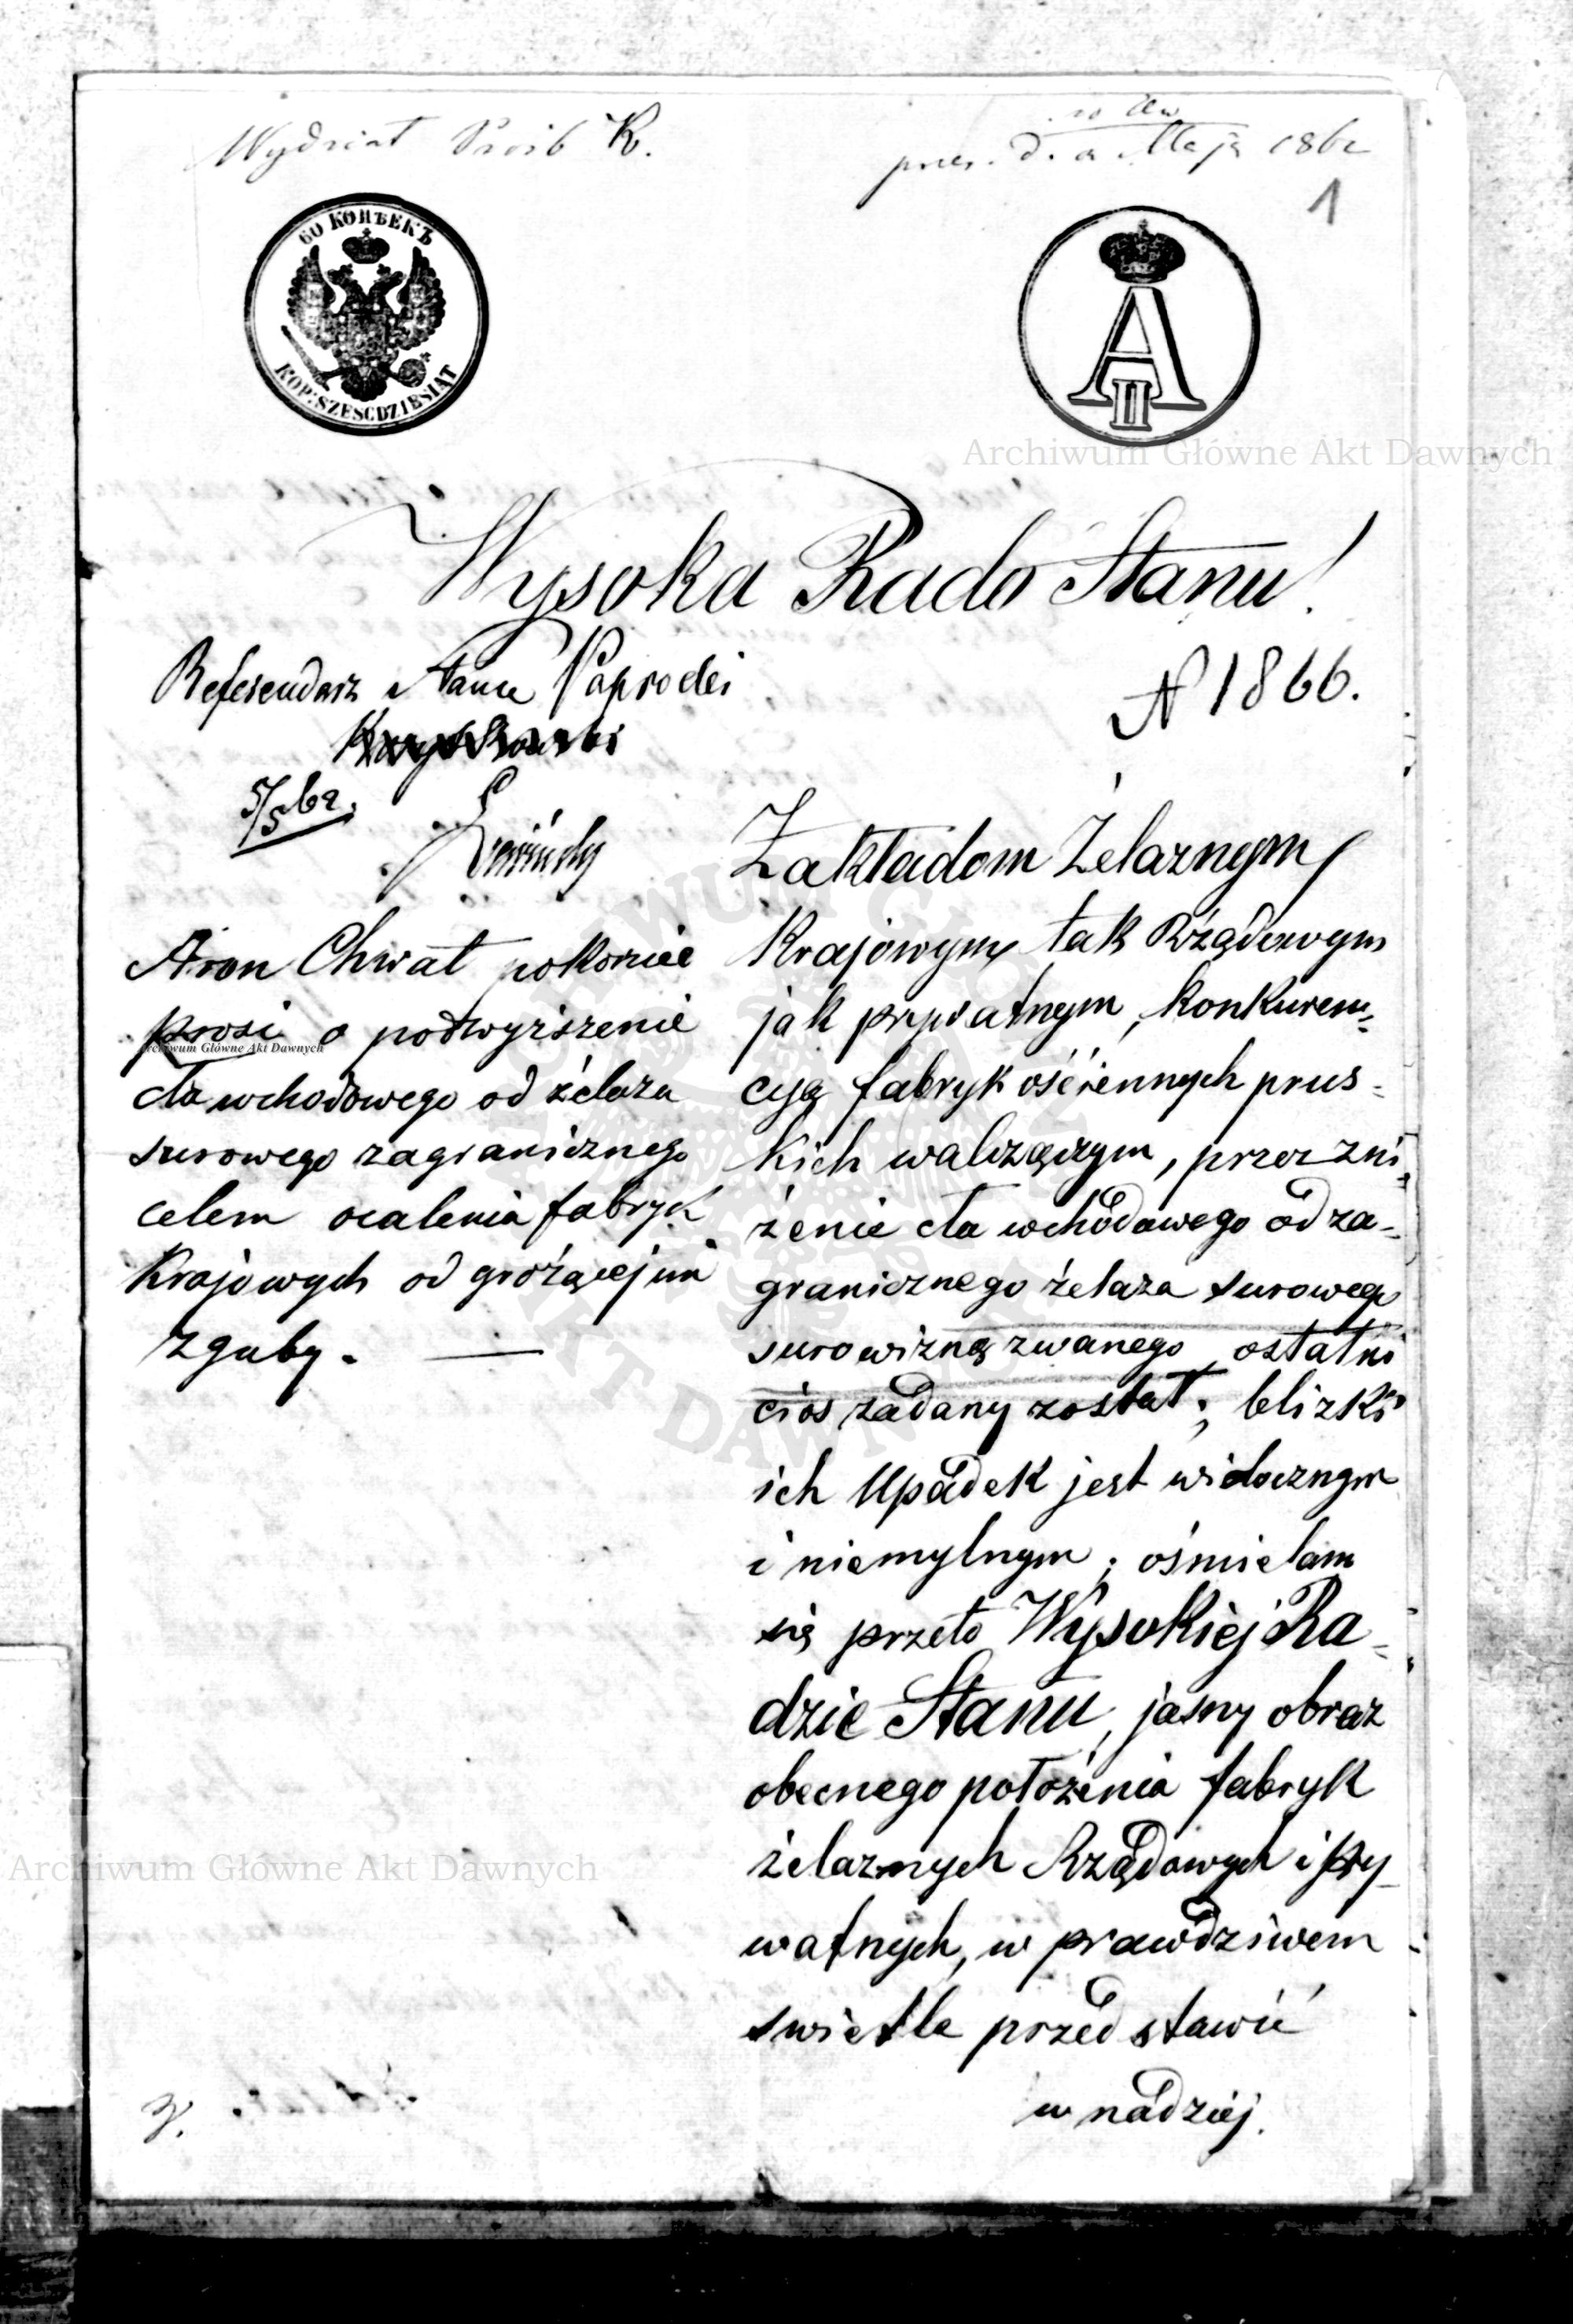 Wydział Próśb R.
pres. d. Maja 1862
1
60 КОПѢЕКЪ
KOP: SZESCDZIESIAT
A II
Archiwum Główne Akt Dawnych
Wysoka Rado Stanu!
Referendarz Stanu Paprocki
N 1866.
5/5 62.
Aron Chwat pokornie
prosi o podwyższenie
cła wchodowego od żelaza
surowego zagranicznego
celem ocalenia fabryk
Krajowych od grożącej im
zguby. —
Zakładom Żelaznym
Krajowym, tak Rządowym
jak prywatnym, konkuren=
cyą fabryk ościennych prus=
kich walczącym, przez zni=
żenie cła wchodowego od za=
granicznego żelaza surowego
surowizną zwanego, ostatni
cios zadany został; blizki
ich upadek jest widocznym
i niemylnym; ośmielam
się przeto Wysokiej Ra=
dzie Stanu, jasny obraz
obecnego położenia fabryk
żelaznych Rządowych i pry_
watnych, w prawdziwem
swietle przedstawić
w nadziej.
Archiwum Główne Akt Dawnych
Archiwum Główne Akt Dawnych
ARCHIWUM GŁÓWNE AKT DAWNYCH